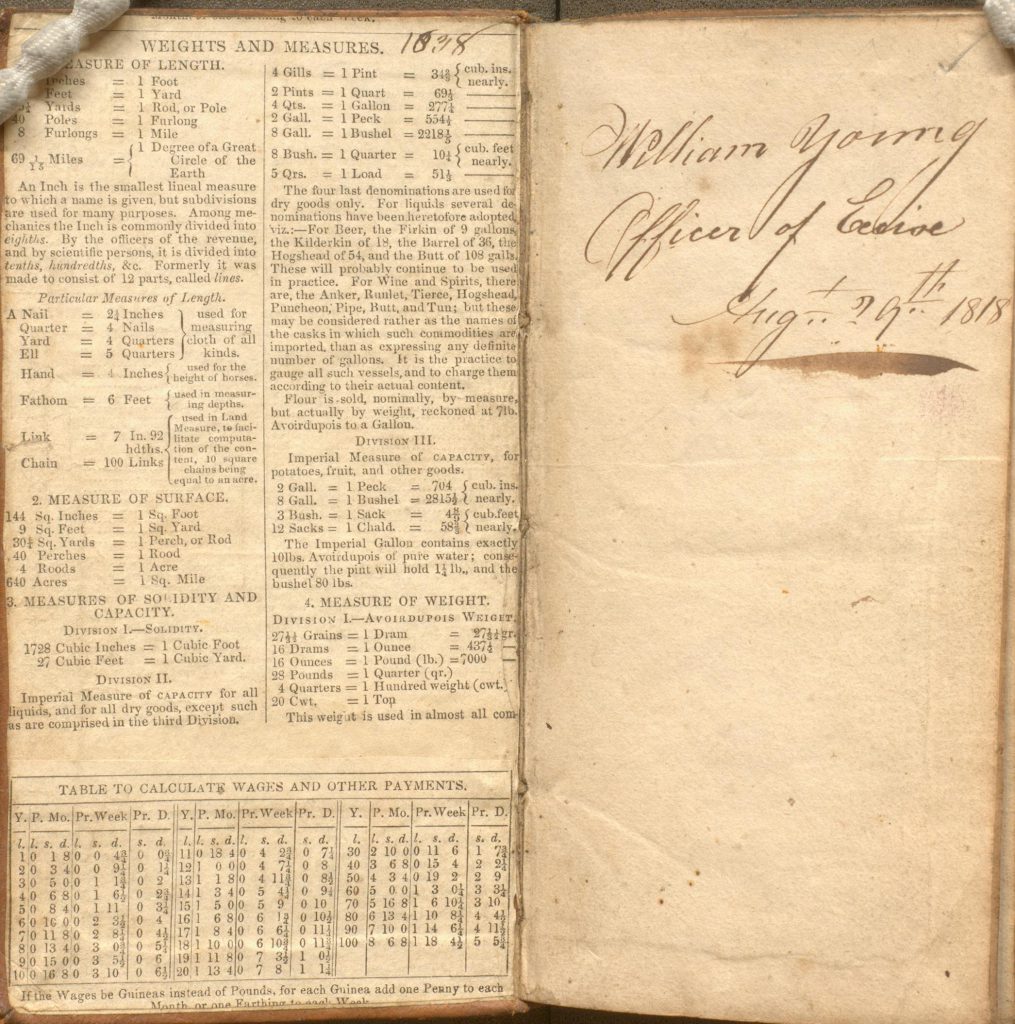 WEIGHTS AND MEASURES. 1838
MEASURE OF LENGTH.
Inches = 1 Foot
Feet = 1 Yard
5½ Yards = 1 Rod, or Pole
40 Poles = 1 Furlong
8 Furlongs = 1 Mile
69 1/15 Miles = { 1 Degree of a Great
Circle of the
Earth
An Inch is the smallest lineal measure
to which a name is given, but subdivisions
are used for many purposes. Among me-
chanics the Inch is commonly divided into
eighths. By the officers of the revenue,
and by scientific persons, it is divided into
tenths, hundredths, &c. Formerly it was
made to consist of 12 parts, called lines.
Particular Measures of Length.
A Nail = 2¼ Inches } used for
Quarter = 4 Nails measuring
Yard = 4 Quarters cloth of all
Ell = 5 Quarters kinds.
Hand = 4 Inches { used for the
height of horses.
Fathom = 6 Feet { used in measur-
ing depths.
Link = 7 In. 92
hdths.
Chain = 100 Links
{ used in Land
Measure, to faci-
litate computa-
tion of the con-
tent, 10 square
chains being
equal to an acre.
2. MEASURE OF SURFACE.
144 Sq. Inches = 1 Sq. Foot
9 Sq. Feet = 1 Sq. Yard
30¼ Sq. Yards = 1 Perch, or Rod
40 Perches = 1 Rood
4 Roods = 1 Acre
640 Acres = 1 Sq. Mile
3. MEASURES OF SOLIDITY AND
CAPACITY.
DIVISION I.—SOLIDITY.
1728 Cubic Inches = 1 Cubic Foot
27 Cubic Feet = 1 Cubic Yard.
DIVISION II.
Imperial Measure of CAPACITY for all
liquids, and for all dry goods, except such
as are comprised in the third Division.
4 Gills = 1 Pint = 34⅔ { cub. ins.
nearly.
2 Pints = 1 Quart = 69⅓ ——
4 Qts. = 1 Gallon = 277¼ ——
2 Gall. = 1 Peck = 554½ ——
8 Gall. = 1 Bushel = 2218⅕ ——
8 Bush. = 1 Quarter = 10¼ { cub. feet
nearly.
5 Qrs. = 1 Load = 51⅓ ——
The four last denominations are used for
dry goods only. For liquids several de-
nominations have been heretofore adopted,
viz.:—For Beer, the Firkin of 9 gallons,
the Kilderkin of 18, the Barrel of 36, the
Hogshead of 54, and the Butt of 108 galls.
These will probably continue to be used
in practice. For Wine and Spirits, there
are, the Anker, Runlet, Tierce, Hogshead,
Puncheon, Pipe, Butt, and Tun; but these
may be considered rather as the names of
the casks in which such commodities are
imported, than as expressing any definite
number of gallons. It is the practice to
gauge all such vessels, and to charge them
according to their actual content.
Flour is sold, nominally, by measure,
but actually by weight, reckoned at 7lb.
Avoirdupois to a Gallon.
DIVISION III.
Imperial Measure of CAPACITY, for
potatoes, fruit, and other goods.
2 Gall. = 1 Peck = 704 { cub. ins.
8 Gall. = 1 Bushel = 2815½ nearly.
3 Bush. = 1 Sack = 4 8/9 { cub.feet
12 Sacks = 1 Chald. = 58⅔ nearly.
The Imperial Gallon contains exactly
10lbs. Avoirdupois of pure water; conse-
quently the pint will hold 1¼ lb., and the
bushel 80 lbs.
4. MEASURE OF WEIGHT.
DIVISION I.—AVOIRDUPOIS WEIGHT.
27 11/32 Grains = 1 Dram = 27 11/32 gr.
16 Drams = 1 Ounce = 437½ —
16 Ounces = 1 Pound (lb.) = 7000 —
28 Pounds = 1 Quarter (qr.)
4 Quarters = 1 Hundred weight (cwt.)
20 Cwt. = 1 Ton
This weight is used in almost all com-
TABLE TO CALCULATE WAGES AND OTHER PAYMENTS.
Y. P. Mo. Pr. Week Pr. D. Y. P. Mo. Pr. Week Pr. D. Y. P. Mo. Pr. Week Pr. D.
l. l. s. d. l. s. d. s. d. l. l. s. d. l. s. d. s. d. l. l. s. d. l. s. d. s. d.
1 0 1 8 0 0 4¾ 0 0¾ 11 0 18 4 0 4 2¾ 0 7¼ 30 2 10 0 0 11 6 1 7¾
2 0 3 4 0 0 9¼ 0 1¼ 12 1 0 0 0 4 7¼ 0 8 40 3 6 8 0 15 4 2 2¼
3 0 5 0 0 1 1¾ 0 2 13 1 1 8 0 4 11¾ 0 8½ 50 4 3 4 0 19 2 2 9
4 0 6 8 0 1 6½ 0 2¾ 14 1 3 4 0 5 4½ 0 9¼ 60 5 0 0 1 3 0¼ 3 3¼
5 0 8 4 0 1 11 0 3¼ 15 1 5 0 0 5 9 0 10 70 5 16 8 1 6 10¼ 3 10
6 0 10 0 0 2 3½ 0 4 16 1 6 8 0 6 1¾ 0 10½ 80 6 13 4 1 10 8¼ 4 4½
7 0 11 8 0 2 8¼ 0 4½ 17 1 8 4 0 6 6¼ 0 11¼ 90 7 10 0 1 14 6¼ 4 11¼
8 0 13 4 0 3 0¾ 0 5¼ 18 1 10 0 0 6 10¾ 0 11¾ 100 8 6 8 1 18 4½ 5 5¾
9 0 15 0 0 3 5½ 0 6 19 1 11 8 0 7 3½ 1 0½
10 0 16 8 0 3 10 0 6½ 20 1 13 4 0 7 8 1 1¼
If the Wages be Guineas instead of Pounds, for each Guinea add one Penny to each
Month, or one Farthing to each Week.
William Young
Officer of Excise
Augt. 29th 1818